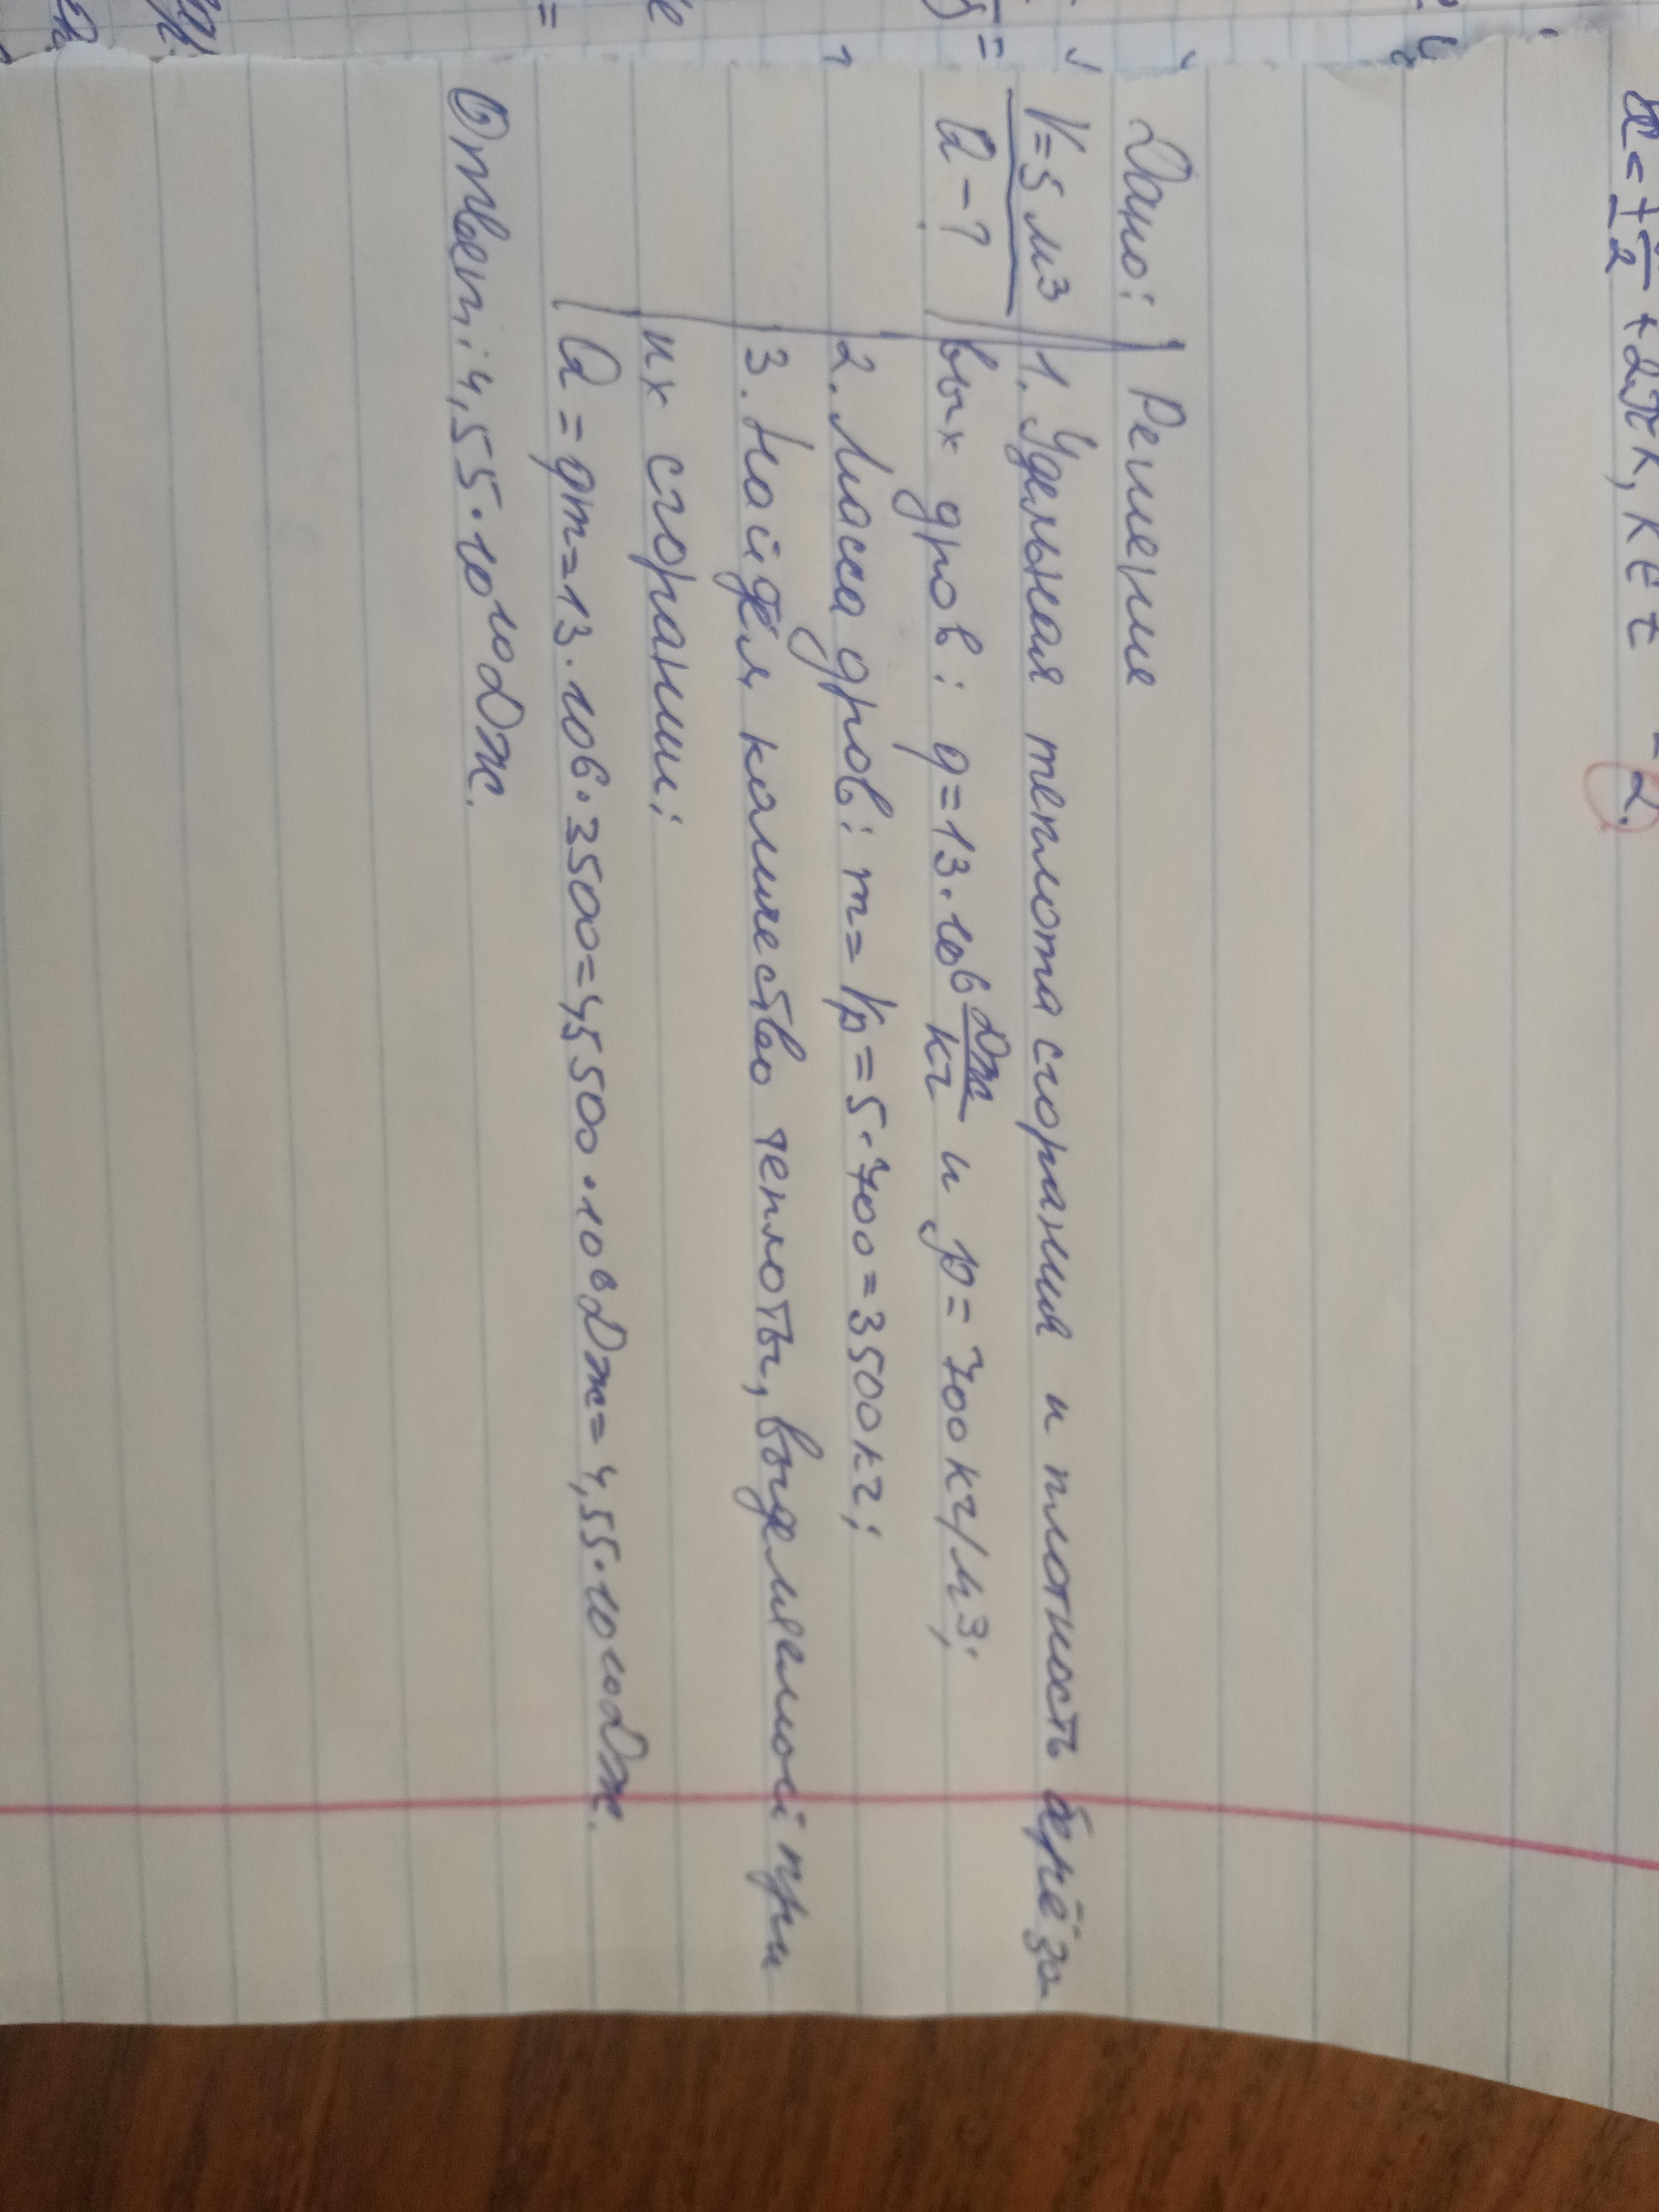 x = ± π/2 + 2πk, k ∈ z - 2.
Дано: Решение
V=5 м³ 1. Удельная теплота сгорания и плотность берёзо-
Q - ? вых дров: q=13·10⁶ Дж/кг и p=700 кг/м³;
2. Масса дров: m=Vp=5·700=3500кг;
3. Найдём количество теплоты, выделяемой при
их сгорании:
Q=qm=13·10⁶·3500=45500·10⁶Дж=4,55·10¹⁰Дж.
Ответ: 4,55·10¹⁰Дж.